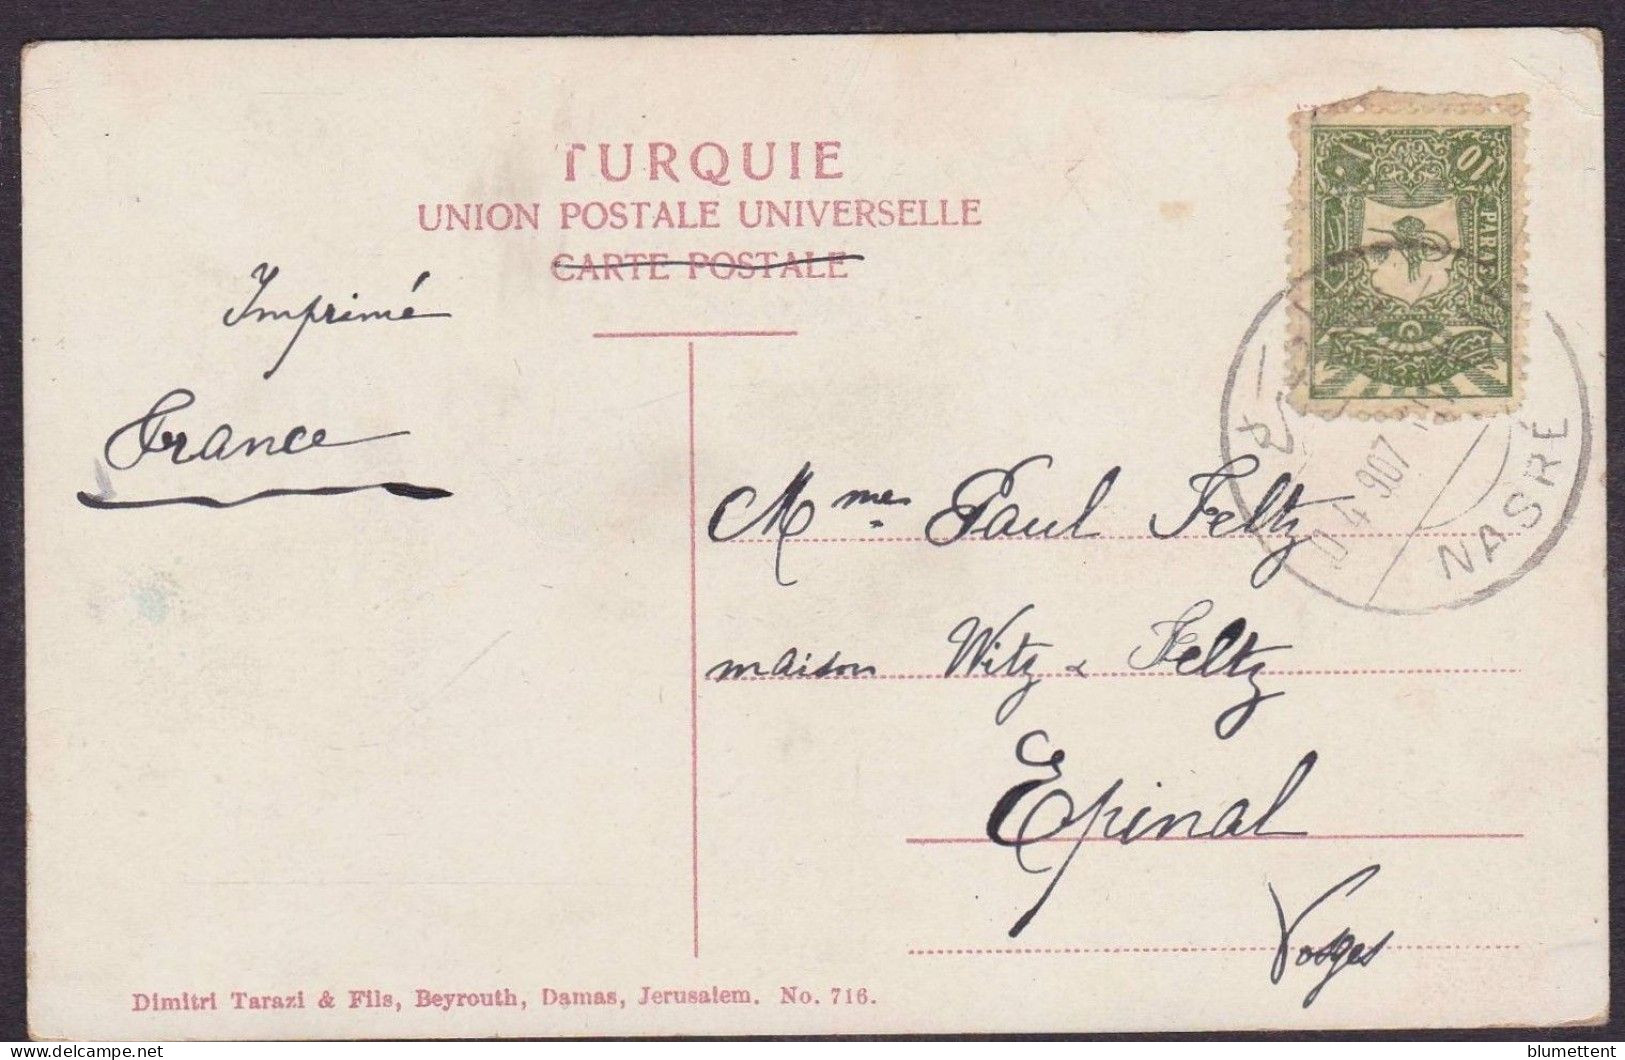 TURQUIE
UNION POSTALE UNIVERSELLE
CARTE POSTALE
Imprimé
France
10
PARES
NASRÉ
4 907
Mmes Paul Feltz
maison Witz & Feltz
Epinal
Vosges
Dimitri Tarazi & Fils, Beyrouth, Damas, Jerusalem. No. 716.
blumettent